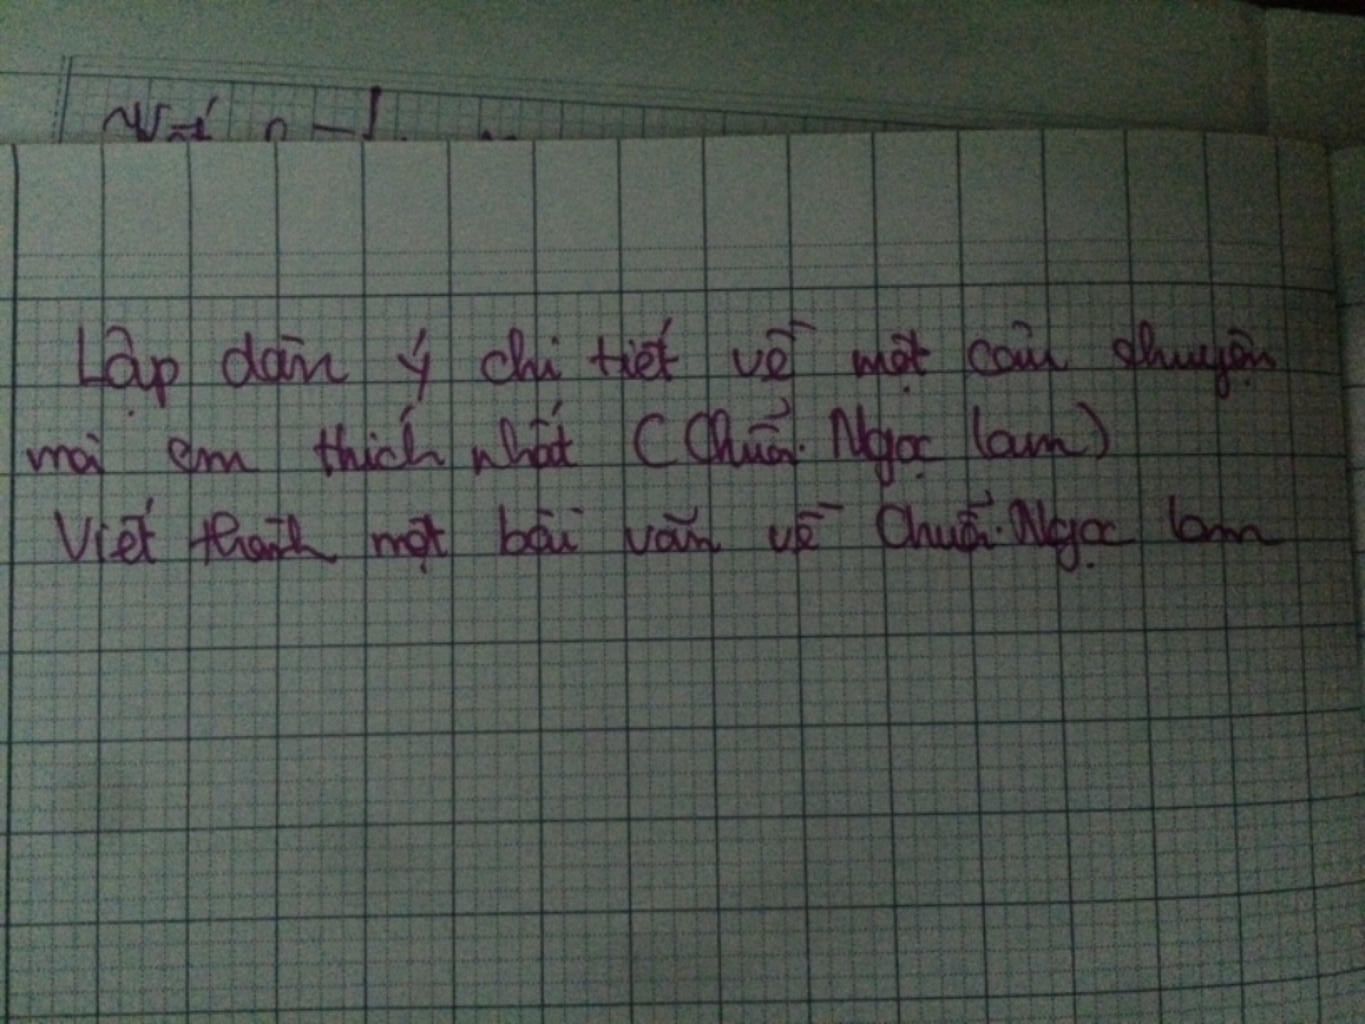 Lập dàn ý chi tiết về một câu chuyện
mà em thích nhất (Chuỗi Ngọc lam)
Viết thành một bài văn về Chuỗi Ngọc lam